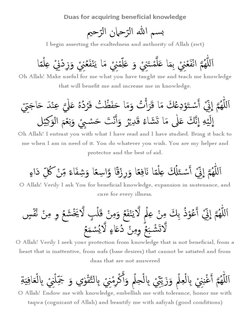 Duas for acquiring beneficial knowledge
بسم الله الرّحمان الرّحيم
I begin asserting the exaltedness and authority of Allah (swt)
اَللّٰهُمَّ انْفَعْنِيْ بِمَا عَلَّمْتَنِيْ وَ عَلِّمْنِيْ مَا يَنْفَعُنِيْ وَزِدْنِيْ عِلْمًا
Oh Allah! Make useful for me what you have taught me and teach me knowledge
that will benefit me and increase me in knowledge.
اَللّٰهُمَّ إِنِّيْ أَسْتَوْدِعُكَ مَا قَرَأْتُ وَمَا حَفِظْتُ فَرُدَّهُ عَلَيَّ عِنْدَ حَاجَتِيْ
إِلَيْهِ إِنَّكَ عَلَى مَا تَشَاءُ قَدِيْرٌ وَأَنْتَ حَسْبِيْ وَنِعْمَ الْوَكِيْل
Oh Allah! I entrust you with what I have read and I have studied. Bring it back to
me when I am in need of it. You do whatever you wish. You are my helper and
protector and the best of aid.
اَللّٰهُمَّ إِنِّيْ أَسْئَلُكَ عِلْمًا نَافِعًا وَرِزْقًا وَاسِعًا وَشِفَاءً مِّنْ كُلِّ دَاءٍ
O Allah! Verily I ask You for beneficial knowledge, expansion in sustenance, and
cure for every illness.
اَللّٰهُمَّ إِنِّيْ أَعُوْذُ بِكَ مِنْ عِلْمٍ لَّا يَنْفَعُ وَمِنْ قَلْبٍ لَّا يَخْشَعُ وَ مِنْ نَّفْسٍ
لَّا تَشْبَعُ وَمِنْ دُعَاءٍ لَّا يُسْمَعُ
O Allah! Verily I seek your protection from knowledge that is not beneficial, from a
heart that is inattentive, from nafs (base desires) that cannot be satiated and from
duas that are not answered
اَللّٰهُمَّ أَغْنِنِيْ بِالْعِلْمِ وَزَيِّنِّيْ بِالْحِلْمِ وَأَكْرِمْنِيْ بِالتَّقْوَى وَ جَمِّلْنِيْ بِالْعَافِيَةِ
O Allah! Endow me with knowledge, embellish me with tolerance, honor me with
taqwa (cognizant of Allah) and beautify me with aafiyah (good conditions)